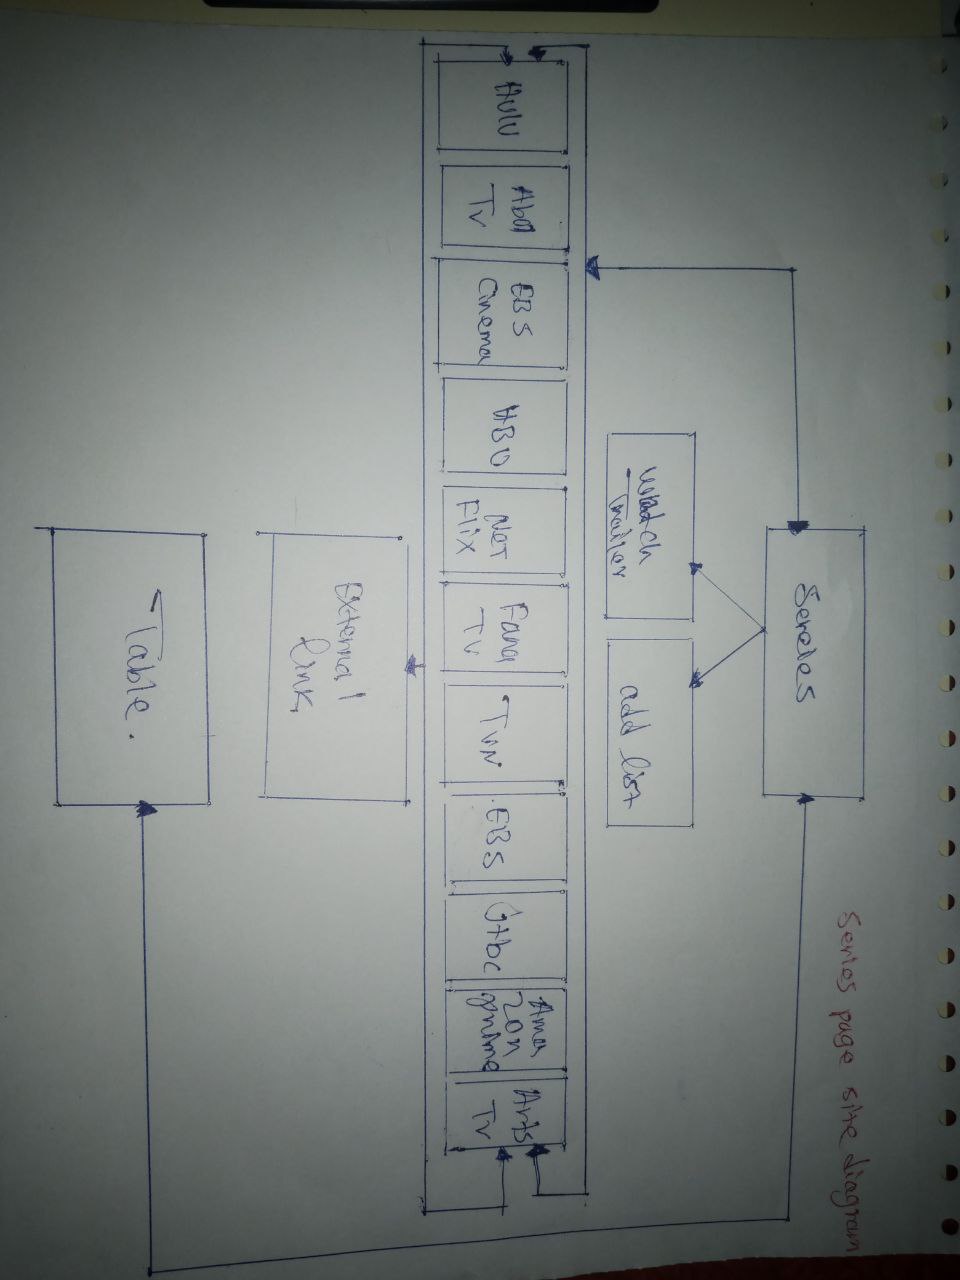 Series page site diagram
Sereies
watch
Trailer
add list
Hulu
Abol
Tv
EBS
Cinema
HBO
Net
Flix
Fana
TV
TVN
EBS
Gtbc
Ama
zon
prime
Arts
Tv
External
link
Table.